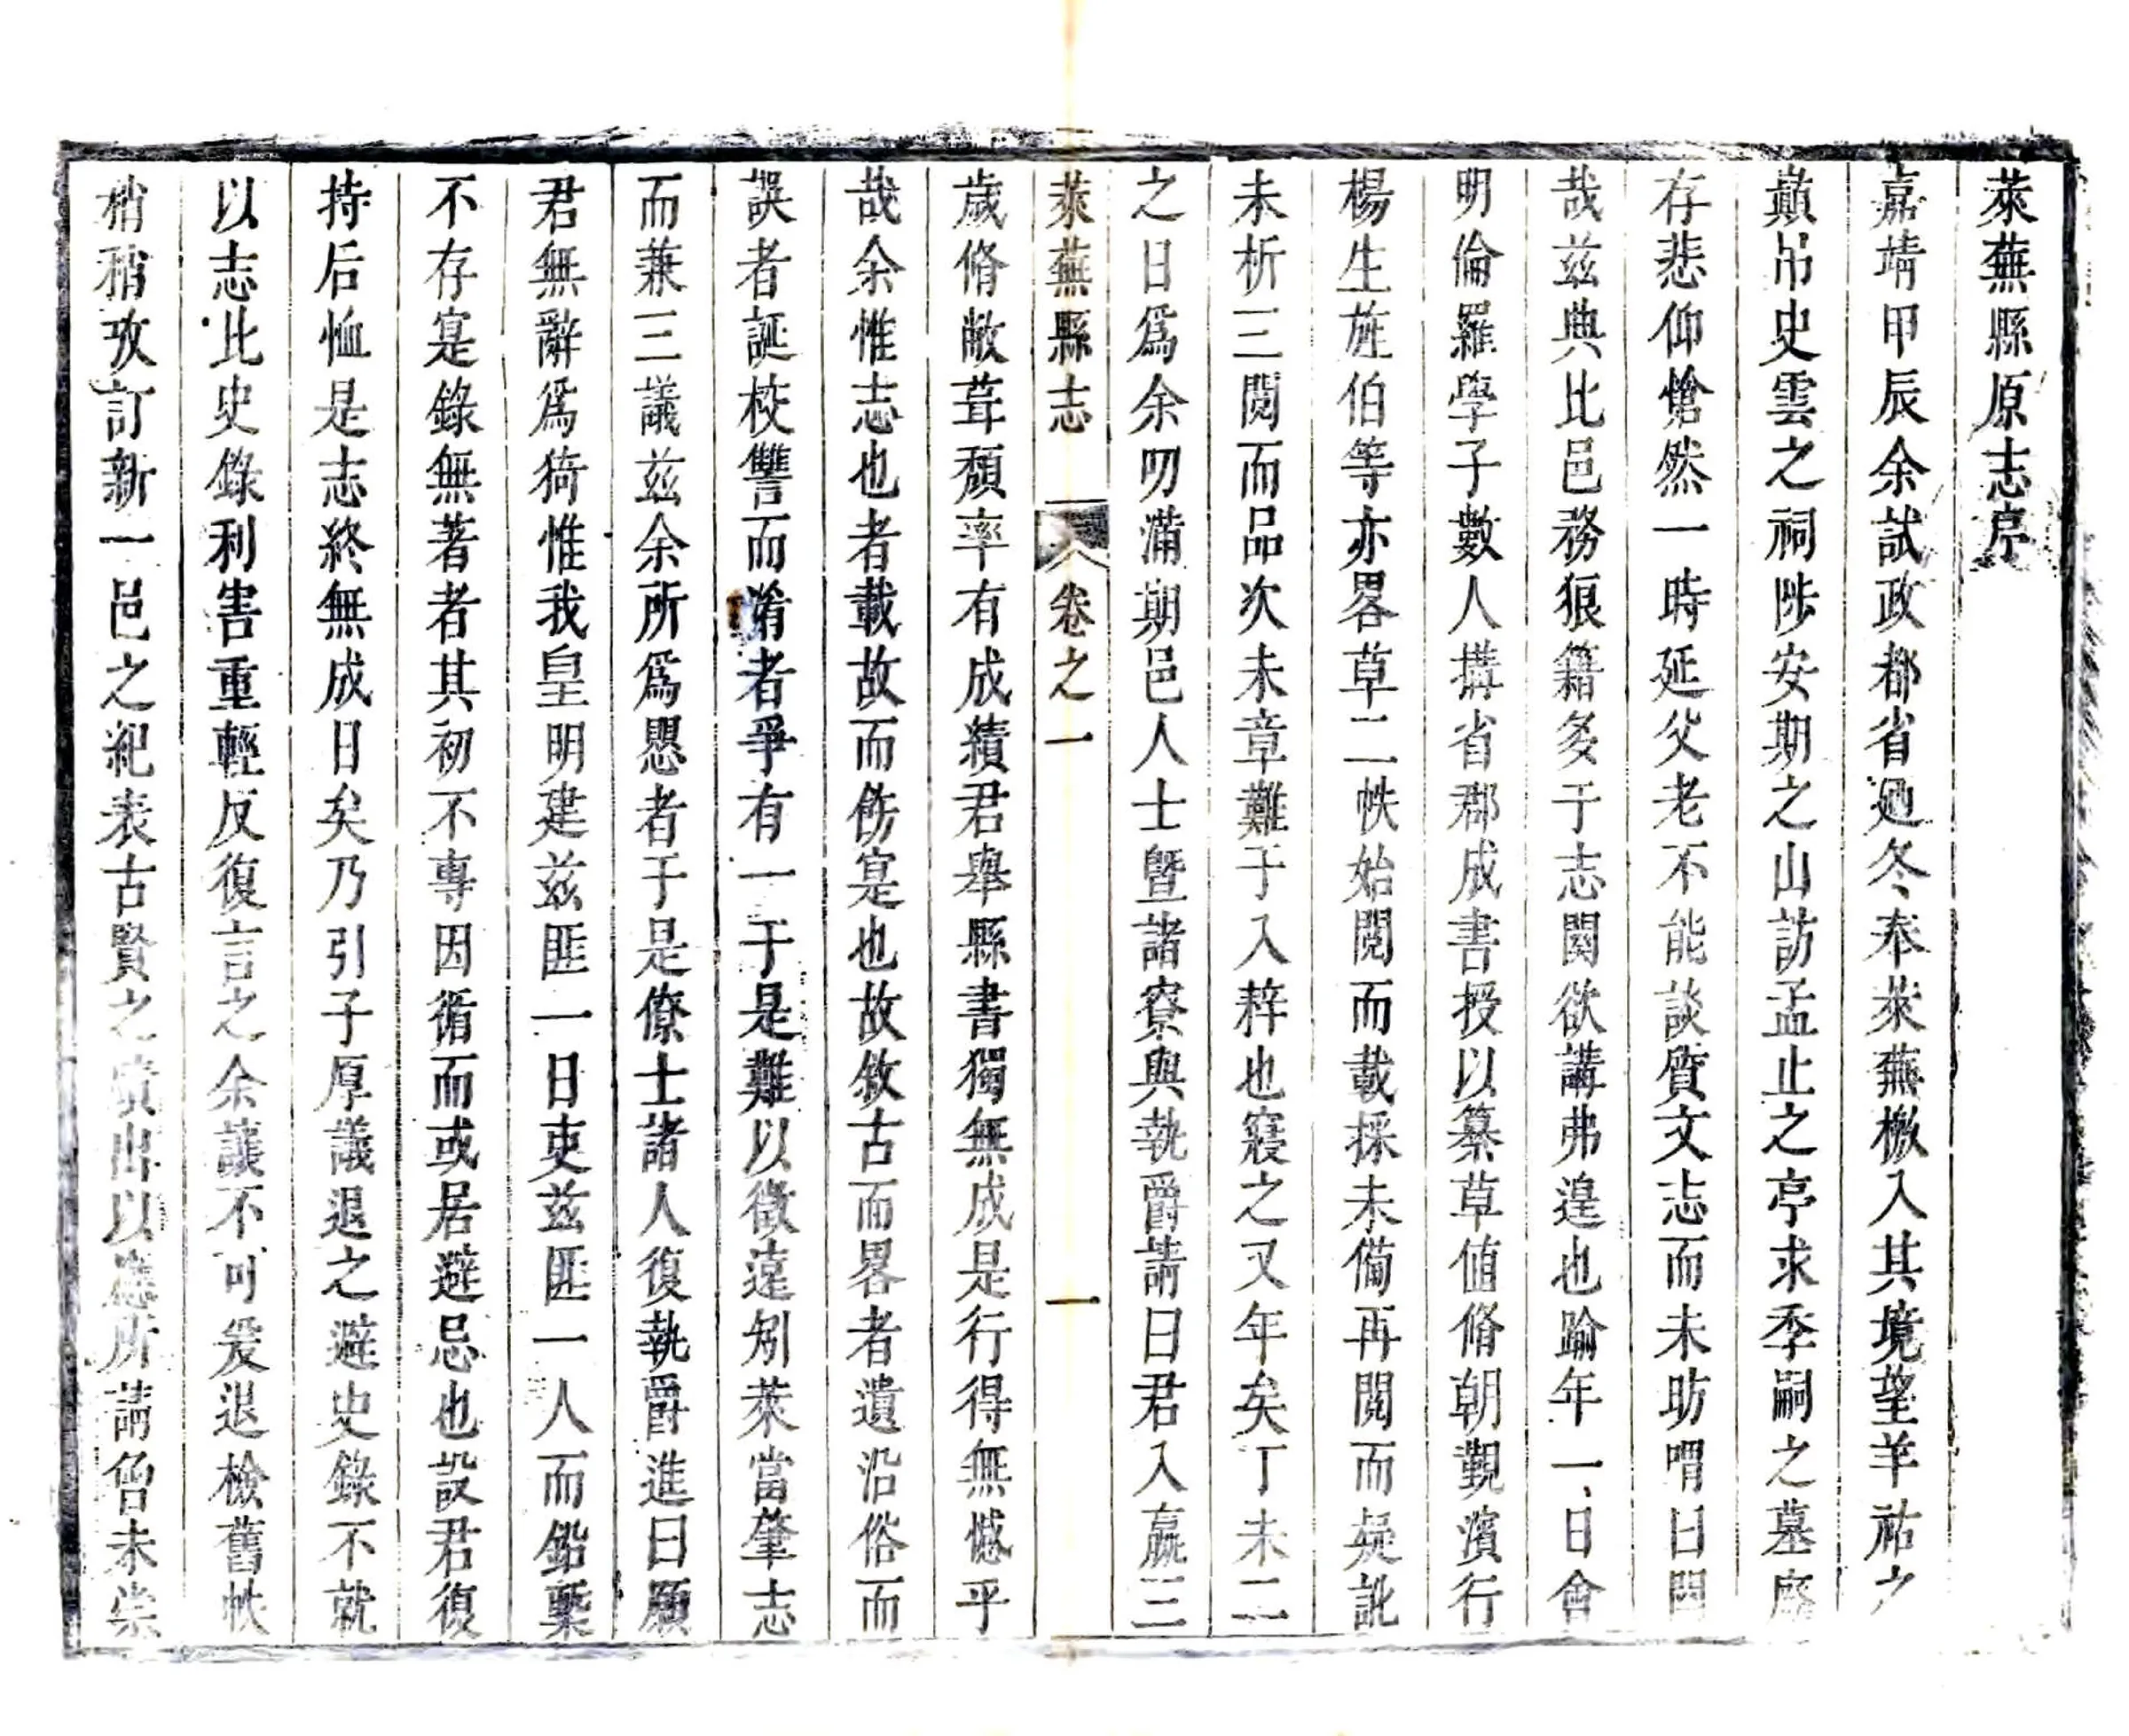 萊蕪縣原志序
嘉靖甲辰余試政都省廵冬奉萊蕪檄入其境望羊祜之
巔吊史雲之祠陟安期之山訪孟止之亭求季嗣之墓廢
存悲仰愴然一時延父老不能談質文志而未昉喟曰闕
哉兹典比邑務狼籍多于志闕欲講弗遑也踰年一日會
明倫羅學子數人搆省郡成書授以纂草值脩朝覲濱行
楊生旌伯等亦畧草二帙始閱而載採未備再閱而疑訛
未析三閱而品次未章難于入梓也寢之又年矣丁未二
之日爲余叨滿期邑人士曁諸寮與執爵請曰君入嬴三
萊蕪縣志 卷之一 一
歲脩敝葺頹率有成績君舉縣書獨無成是行得無憾乎
哉余惟志也者載故而飭寔也故敘古而畧者遺沿俗而
誤者誕校讐而淆者爭有一于是難以徵遠矧萊當肇志
而兼三議兹余所爲愳者于是僚士諸人復執爵進曰願
君無辭爲猗惟我皇明建兹匪一日吏兹匪一人而鉛槧
不存寔錄無著者其初不專因循而或居避忌也設君復
持后恤是志終無成日矣乃引子厚議退之避史錄不就
以志比史錄利害重輕反復言之余讓不可爰退檢舊帙
稍稍攷訂新一邑之紀表古賢之蹟出以應所請曾未崇